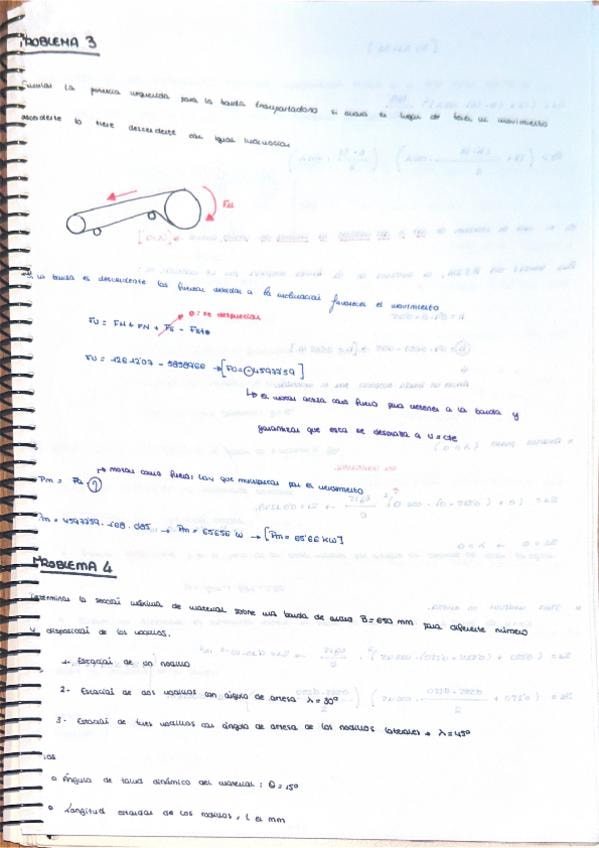 PROBLEMA 3
Calcular la potencia requerida para la banda transportadora si ahora en lugar de tener un movimiento
ascendente lo tiene descendente con igual inclinación
Fu
la banda es descendente las fuerzas debidas a la inclinación favorecen el movimiento
0: se desprecian
Fu = FH + FN + Fs - FSt
→ El motor actúa como freno para retener a la banda y
garantizar que esta se desplaza a v = cte
→ motor como freno: hay que multiplicar por el rendimiento
Pm = Fu · η
→ Pm = 65656 W → [Pm = 65'66 KW]
PROBLEMA 4
Determinar la sección máxima de material sobre una banda de ancho B = 650 mm para diferente número
y disposición de los rodillos.
1- Estación de un rodillo
2- Estación de dos rodillos con ángulo de artesa λ = 30º
3- Estación de tres rodillos con ángulo de artesa de los rodillos laterales → λ = 45º
o Ángulo de talud dinámico del material: θ = 15º
o Longitud estándar de los rodillos, l en mm